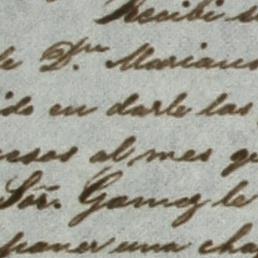 Recibi
de Dn. Mariano
en darle las
al mes
Sor. Gamez le
poner una